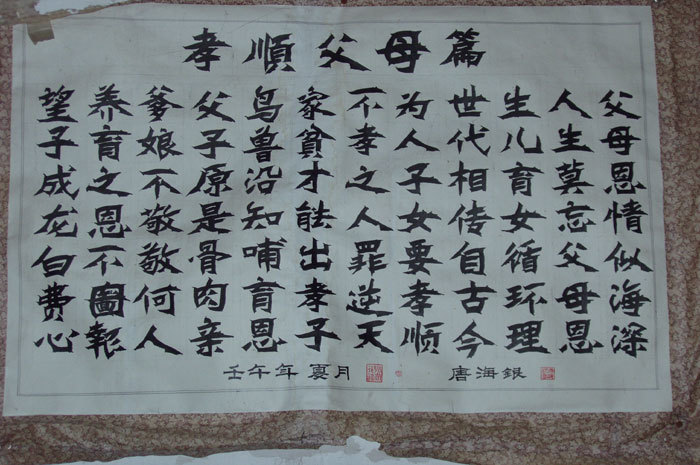 孝順父母篇
父母恩情似海深
人生莫忘父母恩
生儿育女循环理
世代相传自古今
为人子女要孝顺
不孝之人罪逆天
家貧才能出孝子
鸟兽沿知哺育恩
父子原是骨肉亲
爹娘不敬敬何人
养育之恩不圖報
望子成龙白费心
壬午年 夏月 唐海銀